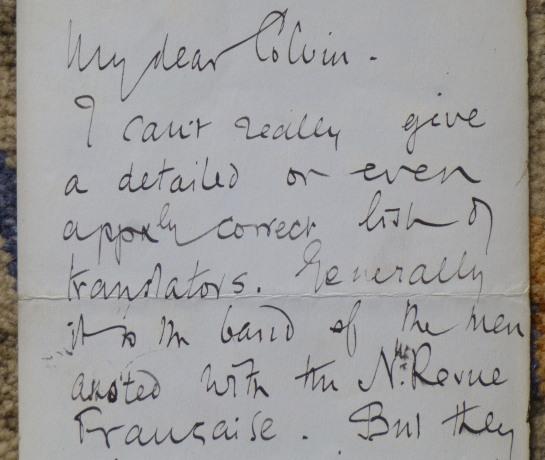 My dear Colvin.
I can't really give
a detailed or even
appxly correct list of
translators. Generally
it is the band of the men
with the Nlle. Revue
Française. But they